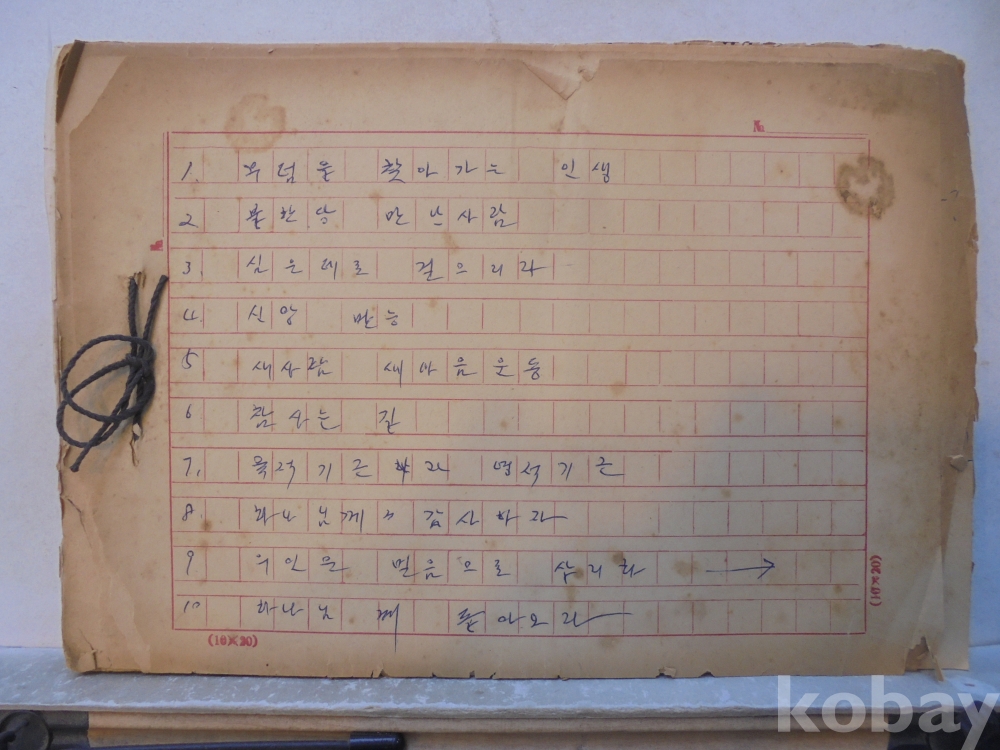 №
1. 무덤을 찾아가는 인생
2. 불한당 만난사람
3. 심은데로 걷으리라
4. 신앙 만능
№
5 새사람 새마음운동
6 참사는 길
7. 육적기근과 영적기근
8. 하나님께 감사하라
9 의인은 믿음으로 살리라 →
10 하나님께 돌아오라
(10×20)
(10×20)
kobay